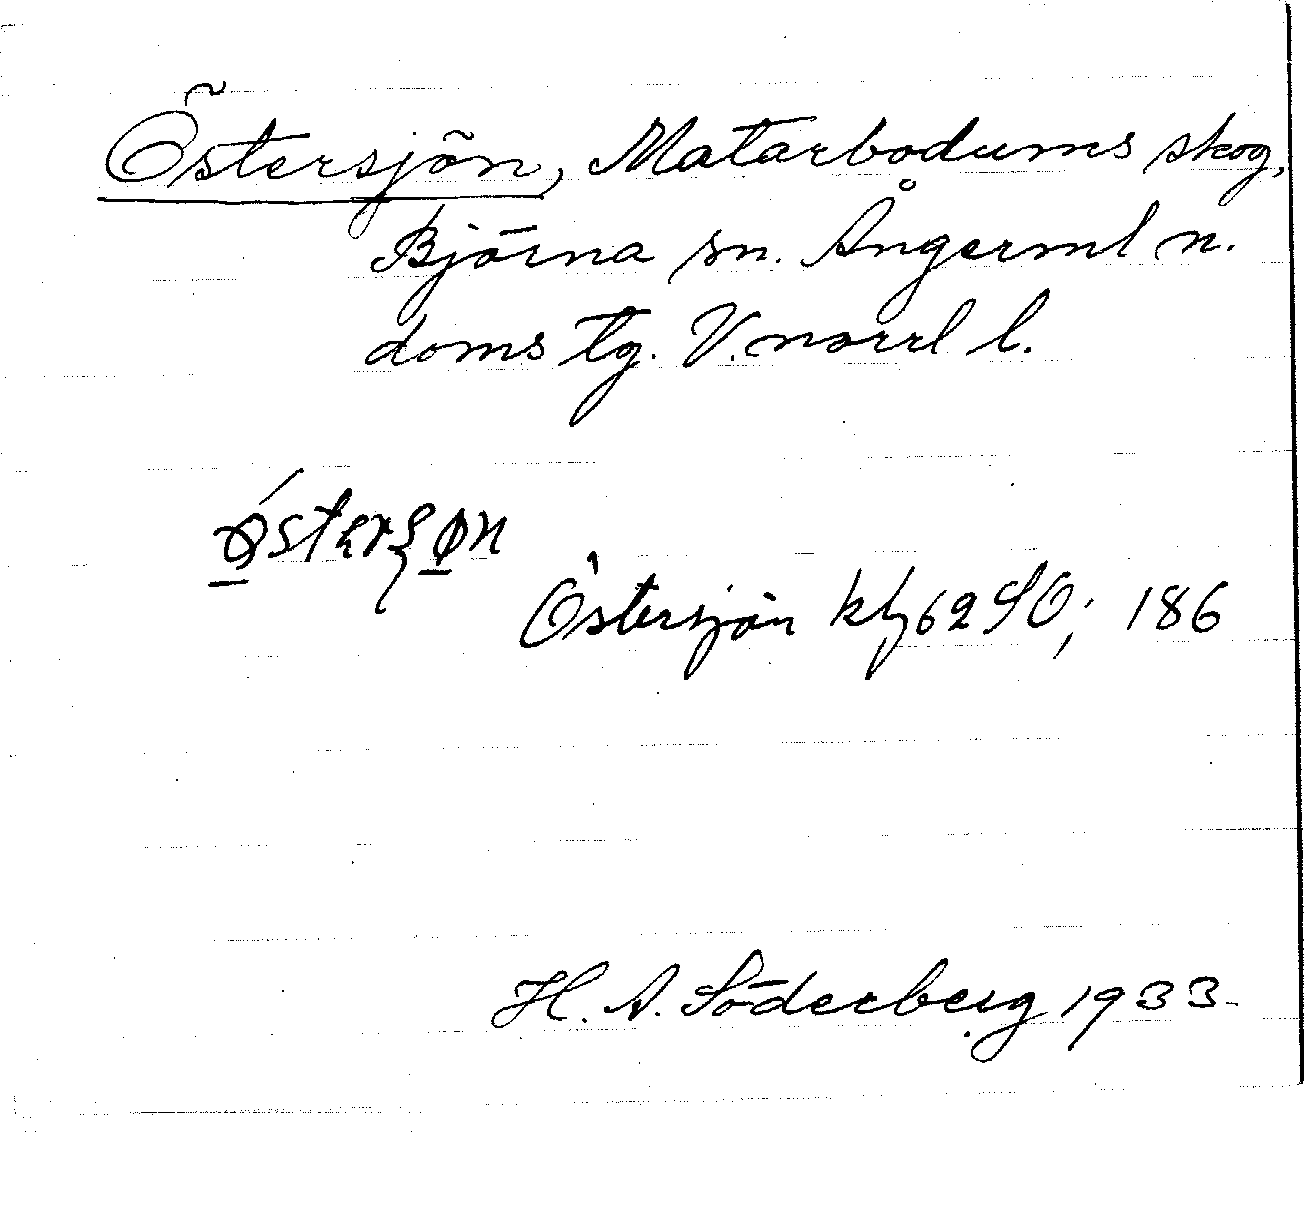 Östersjön, Matarbodums skog,
Björna sn. Ångerml n.
doms tg. V.norrl l.
Östersjön kbl 62 SO; 186
H. A. Söderberg 1933